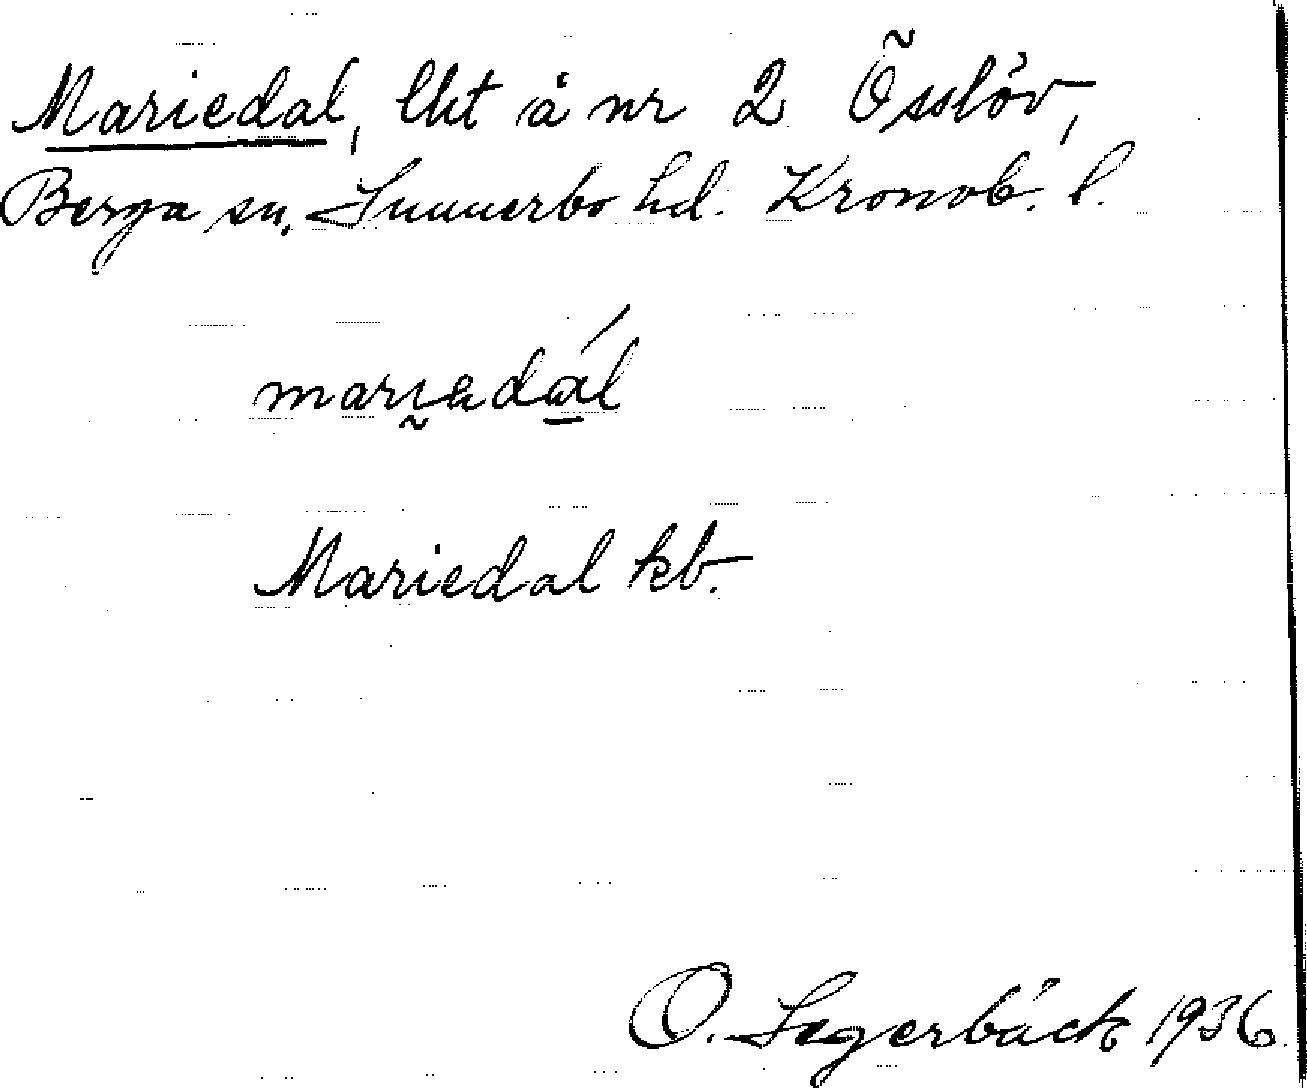 Mariedal, lht å nr 2 Össlöv,
Berga sn. Sunnerbo hd. Kronob. l.
marıadál
Mariedal kb.
O. Segerbäck 1936